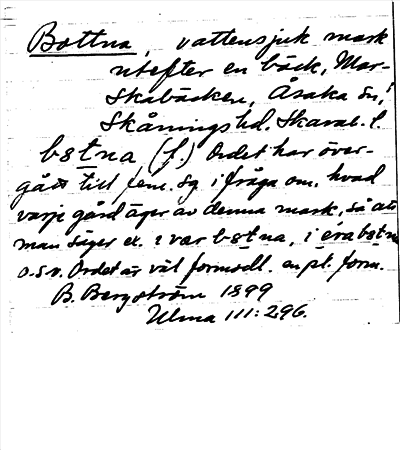 Bottna, vattensjuk mark
utefter en bäck, Mar-
skabäcken, Åsaka sn,
Skånings hd. Skarab. l.
bstna (f.) Ordet har över-
gått till fem. sg i fråga om, hvad
varje gård äger av denna mark, så att
man säger ex. i var bstna, i era bstna
o.s.v. Ordet är väl formodl. en pl. form.
B. Bergström 1899
Ulma 111:296.